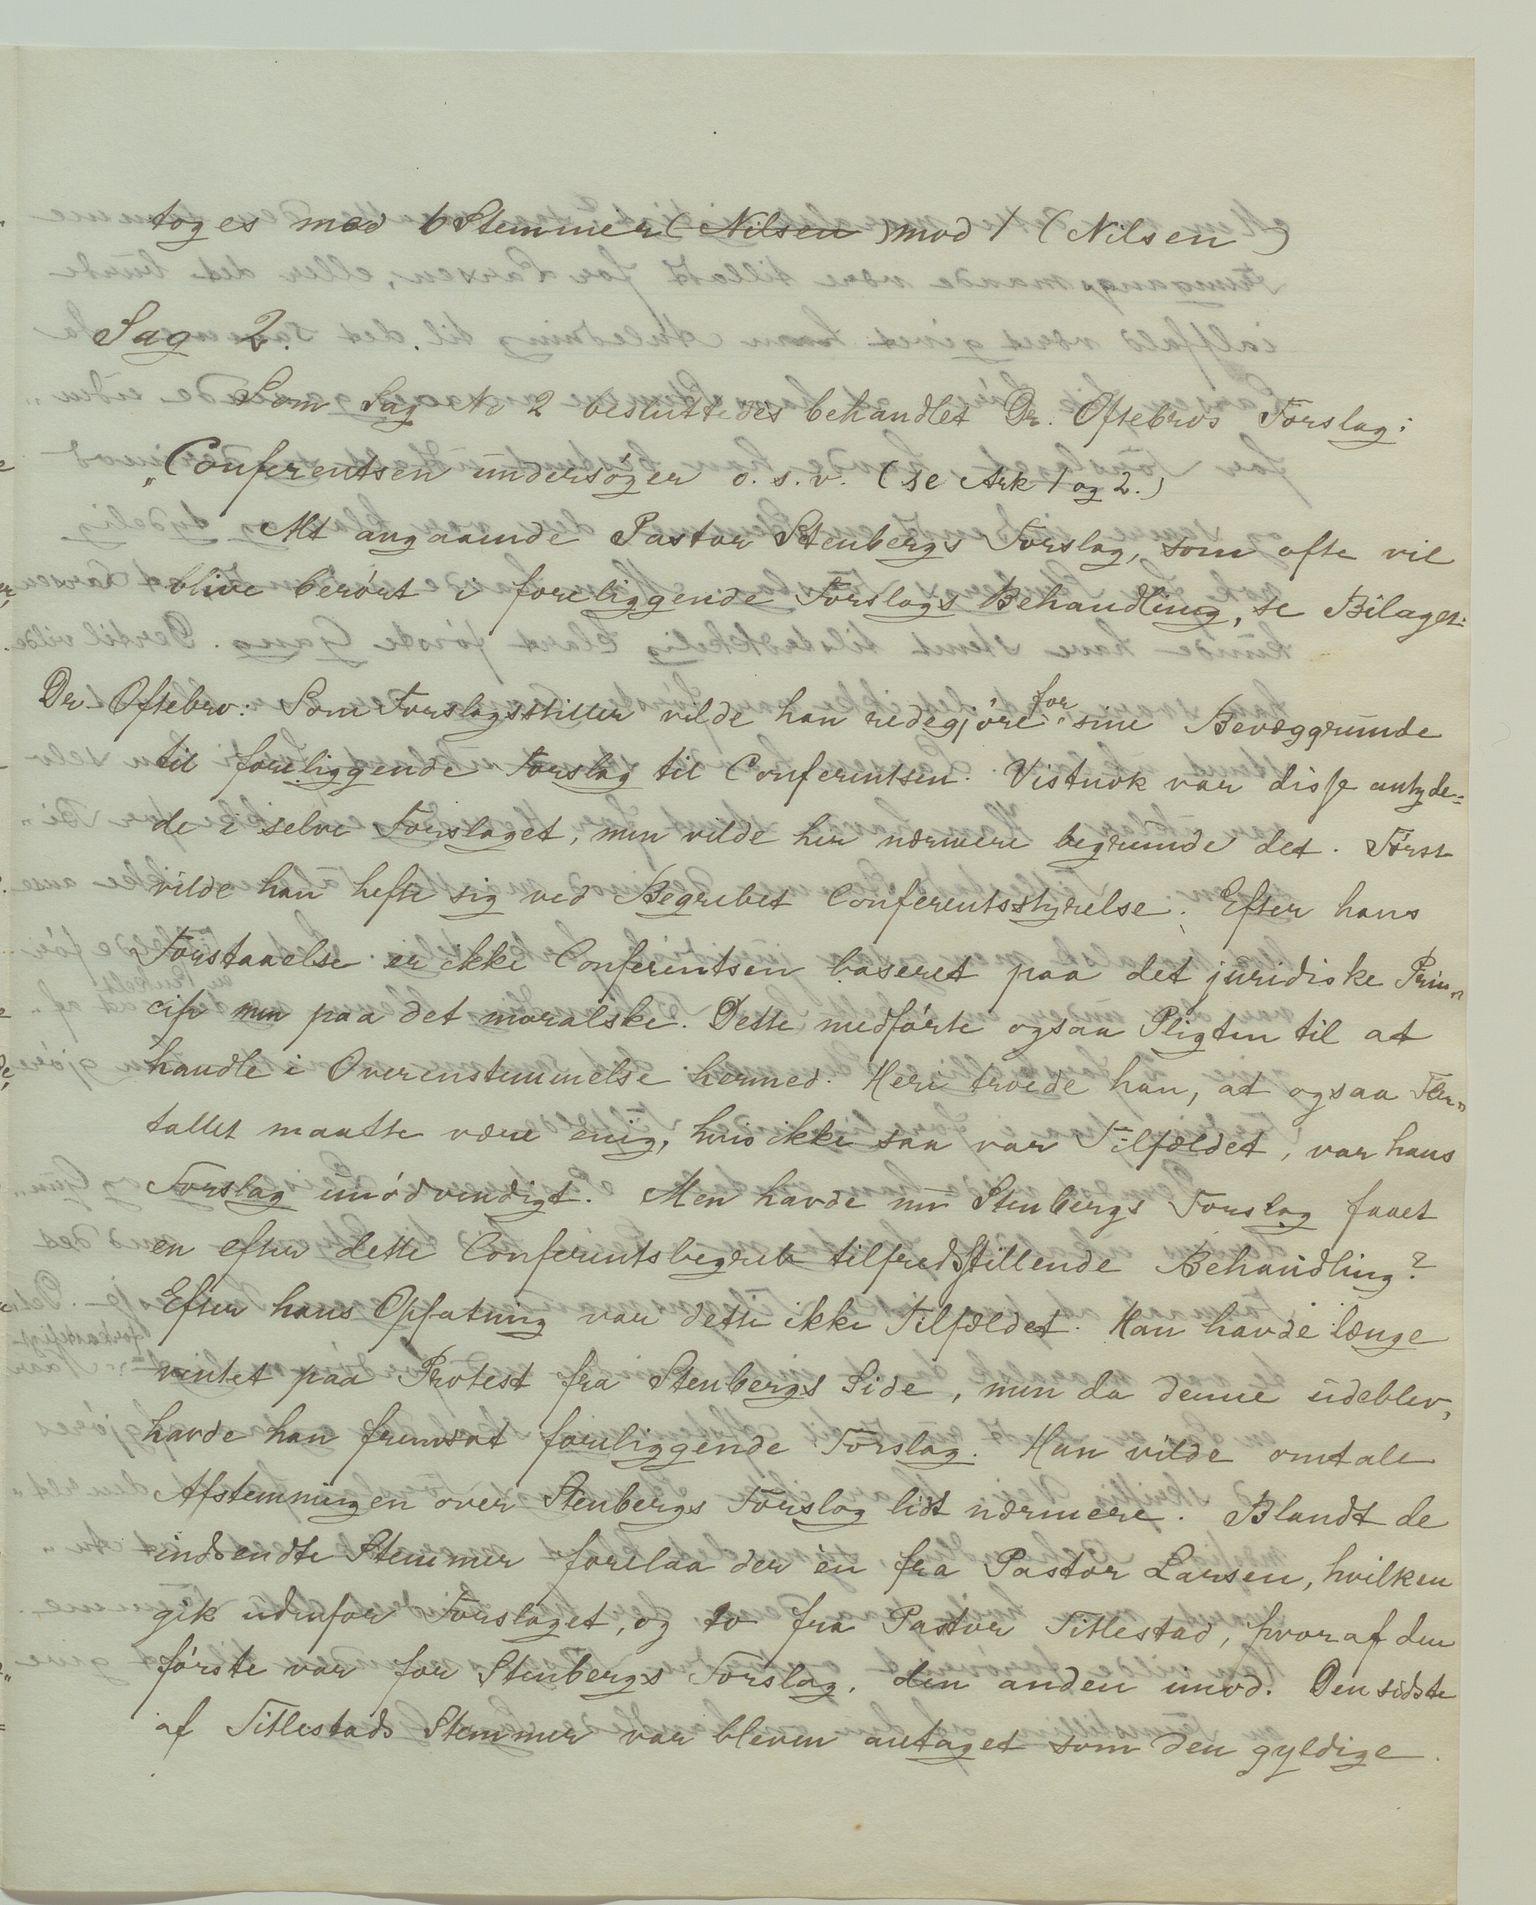 toges mod 6 Stemmer (Nilsen) mod 1 (Nilsen)
Sag 2.
Som Sag No 2 besluttedes behandlet Dr. Oftebros Forslag:
„Conferentsen undersøger o. s. v. (se Ark 1 og 2.)
Alt angaaende Pastor Stenbergs Forslag, som ofte vil
blive berørt i foreliggende Forslags Behandling, se Bilaget:
Dr. Oftebro: Som Forslagsstiller vilde han redegjøre for sine Bevæggrunde
til foreliggende Forslag til Conferentsen. Vistnok var disse antyde=
de i selve Forslaget, men vilde her nærmere begrunde det. Først
vilde han hefte sig ved Begrebet Conferentsstyrelse. Efter hans
Forstaaelse er ikke Conferentsen baseret paa det juridiske Prin„
cip men paa det moralske. Dette medførte ogsaa Pligten til at
handle i Overenstemmelse hermed. Heri troede han, at ogsaa Fler„
tallet maatte være enig, hvis ikke saa var Tilfældet, var hans
Forslag unødvendigt. Men havde nu Stenbergs Forslag faaet
en efter dette Conferentsbegreb tilfredsstillende Behandling?
Efter hans Opfatning var dette ikke Tilfældet. Han havde længe
ventet paa Protest fra Stenbergs Side, men da denne udeblev,
havde han fremsat foreliggende Forslag. Han vilde omtale
Afstemningen over Stenbergs Forslag lidt nærmere. Blandt de
indsendte Stemmer forelaa der én fra Pastor Larsen, hvilken
gik udenfor Forslaget, og to fra Pastor Titlestad, hvoraf den
første var for Stenbergs Forslag, den anden imod. Den sidste
af Titlestads Stemmer var bleven antaget som den gyldige.